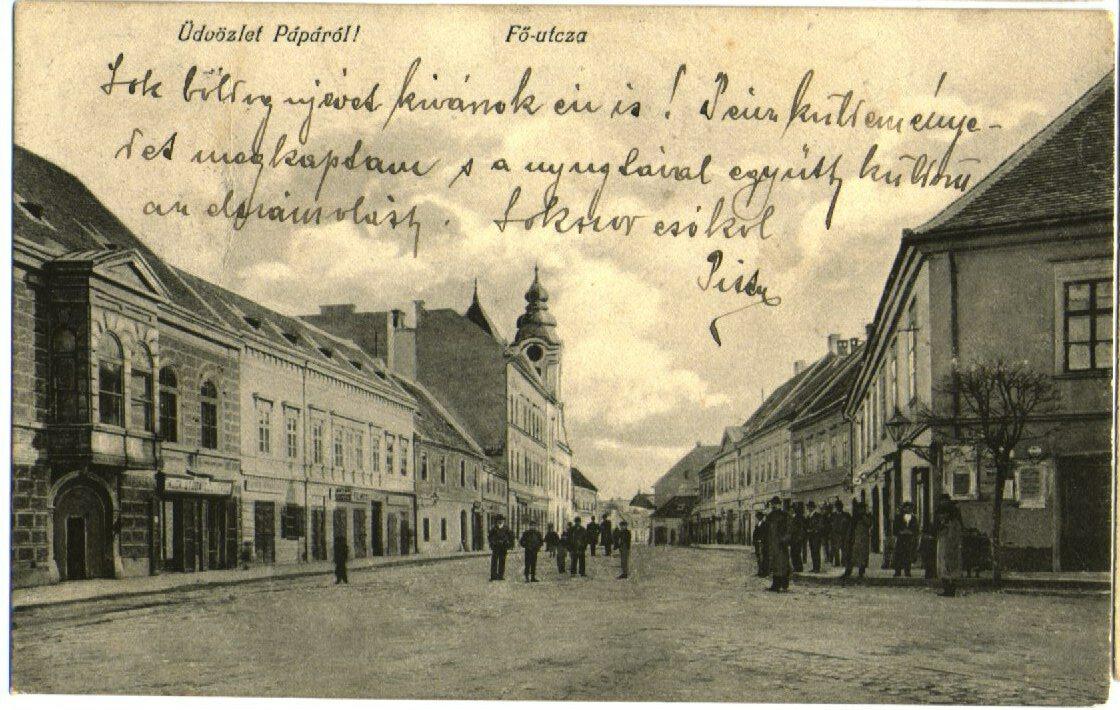 Üdvözlet Pápáról! Fő-utcza
Sok bóldog ujévet kivánok én is! Pénzküldeménye-
det megkaptam s a nyugtával együtt küldöm
az elszámolást. Sokszor csókol
Pista